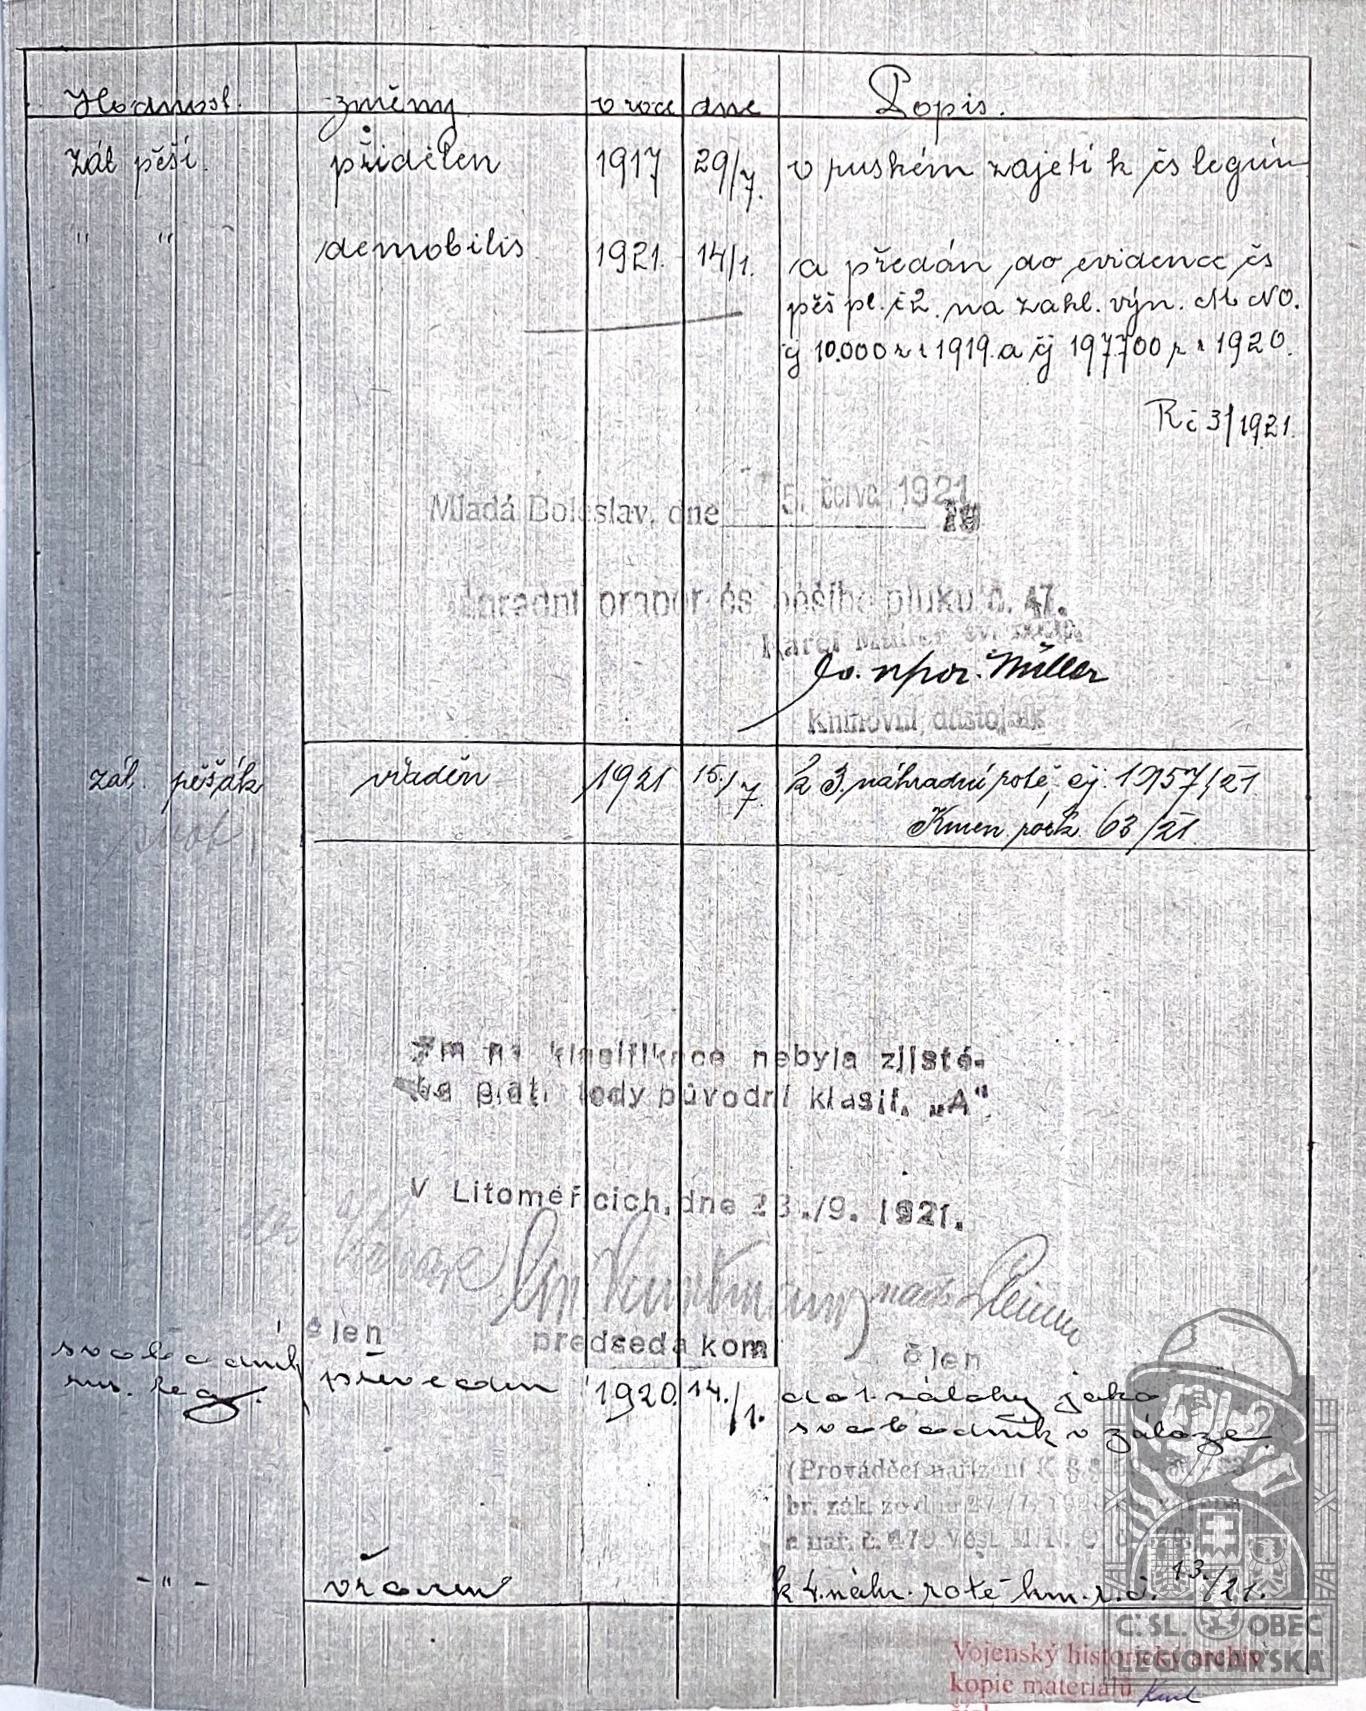 Hodnost. změny v roce dne Popis.
zál pěší. přidělen 1917 29/7. v ruském zajetí k čs legiím
" " demobilis. 1921. 14/1. a předán do evidence čs
pěš pl. č 2. na zákl. výn. MNO.
čj 10.000 z r 1919. a čj 197700 z r 1920.
R č 3/1921.
Mladá Boleslav, dne 5. června 1921
Náhradní prapor čs pěšího pluku č. 47.
Karel Müller
npor. Müller
Kmenový důstojník
zál. pěšák vřaděn 1921 15./7. k 3. náhradní rotě, čj. 1957/21
Kmen. rozk. 63/21.
Změna klasifikace nebyla zjistě-
na platí tedy původní klasif. „A"
V Litoměřicích, dne 23./9. 1921.
člen předseda kom člen
svobodník
převeden 1920. 14./1. do I. zálohy jako
svobodník v záloze.
(Prováděcí nařízení K §
br. zák. ze dne 27/7. 1920
-"- vřazen k 4. náhr. rotě km. r. č. 13./21.
Č. SL. OBEC
LEGIONÁŘSKÁ
Vojenský historický archiv
kopie materiálů